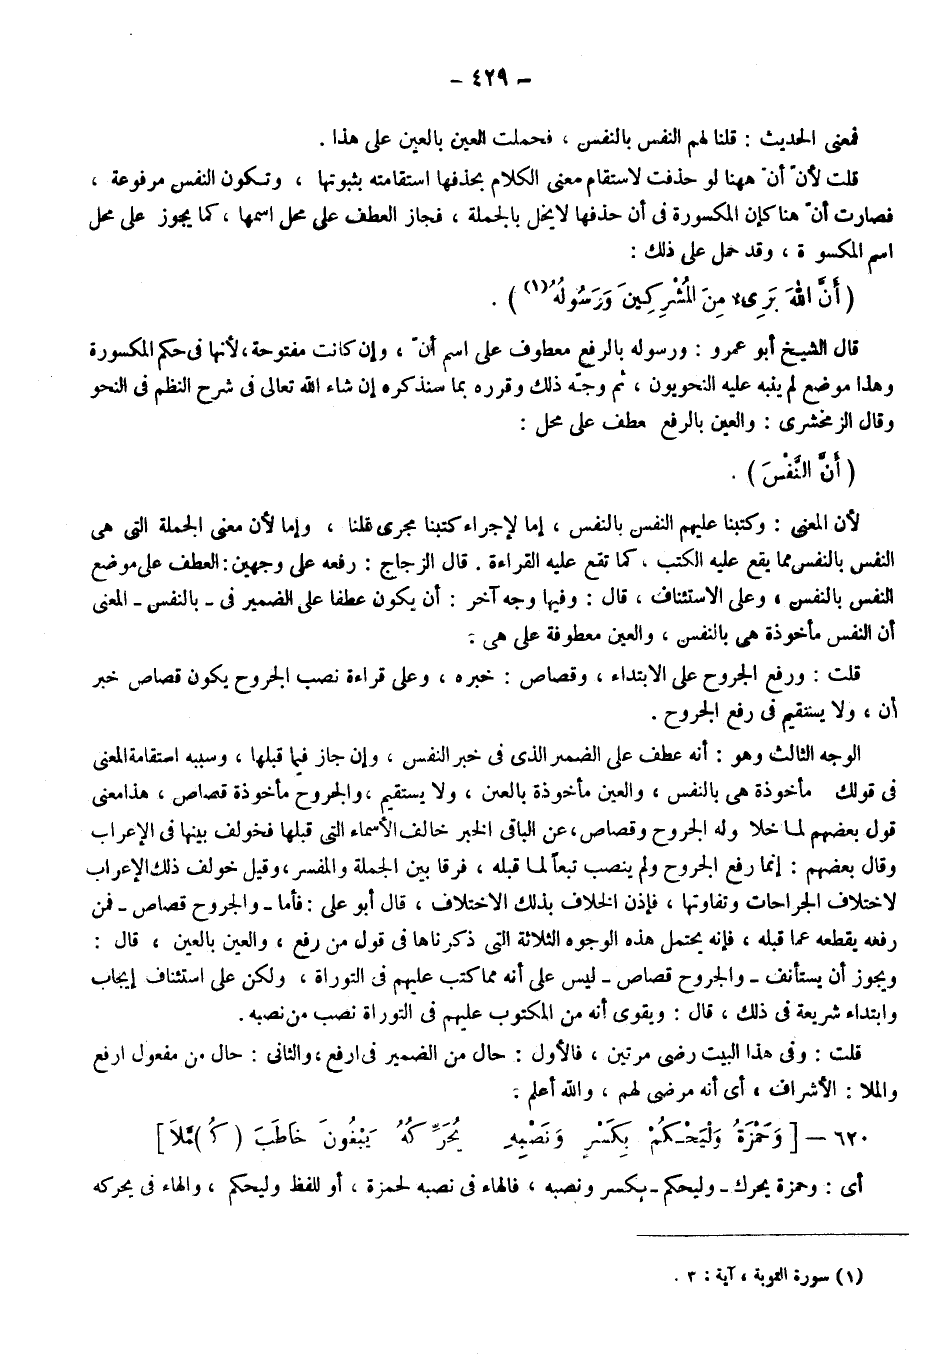 – ٤٢٩ –
فمعنى الحديث : قلنا لهم النفس بالنفس ، فحملت العين بالعين على هذا .
قلت لأن أن ههنا لو حذفت لاستقام معنى الكلام بحذفها استقامته بثبوتها ، وتكون النفس مرفوعة ،
فصارت أنّ هنا كإن المكسورة فى أن حذفها لايخل بالجملة ، فجاز العطف على محل اسمها ، كما يجوز على محل
اسم المكسو ة ، وقد حمل على ذلك :
( أَنَّ اللهَ بَرِىء مِنَ المُشْرِكِينَ وَرَسُولُهُ (١) ) .
قال الشيخ أبو عمرو : ورسوله بالرفع معطوف على اسم أنّ ، وإن كانت مفتوحة ، لأنها فى حكم المكسورة
وهذا موضع لم ينبه عليه النحويون ، ثم وجّه ذلك وقرره بما سنذكره إن شاء الله تعالى فى شرح النظم فى النحو
وقال الزمخشرى : والعين بالرفع عطف على محل :
( أَنَّ النَّفْسَ ) .
لأن المعنى : وكتبنا عليهم النفس بالنفس ، إما لإجراء كتبنا مجرى قلنا ، وإما لأن معنى الجملة التى هى
النفس بالنفس مما يقع عليه الكتب ، كما تقع عليه القراءة . قال الزجاج : رفعه على وجهين : العطف على موضع
النفس بالنفس ، وعلى الاستئناف ، قال : وفيها وجه آخر : أن يكون عطفا على الضمير فى ـ بالنفس ـ المعنى
أن النفس مأخوذة هى بالنفس ، والعين معطوفة على هى :
قلت : ورفع الجروح على الابتداء ، وقصاص : خبره ، وعلى قراءة نصب الجروح يكون قصاص خبر
أن ، ولا يستقيم فى رفع الجروح .
الوجه الثالث وهو : أنه عطف على الضمير الذى فى خبر النفس ، وإن جاز فيما قبلها ، وسببه استقامة المعنى
فى قولك مأخوذة هى بالنفس ، والعين مأخوذة بالعين ، ولا يستقيم ، والجروح مأخوذة قصاص ، هذا معنى
قول بعضهم لما خلا وله الجروح وقصاص ، عن الباقى الخبر خالف الأسماء التى قبلها فخولف بينها فى الإعراب
وقال بعضهم : إنما رفع الجروح ولم ينصب تبعاً لما قبله ، فرقا بين الجملة والمفسر ، وقيل خولف ذلك الإعراب
لاختلاف الجراحات وتفاوتها ، فإذن الخلاف بذلك الاختلاف ، قال أبو على : فأما ـ والجروح قصاص ـ فمن
رفعه يقطعه عما قبله ، فإنه يحتمل هذه الوجوه الثلاثة التى ذكرناها فى قول من رفع ، والعين بالعين ، قال :
ويجوز أن يستأنف ـ والجروح قصاص ـ ليس على أنه مما كتب عليهم فى التوراة ، ولكن على استئناف إيجاب
وابتداء شريعة فى ذلك ، قال : ويقوى أنه من المكتوب عليهم فى التوراة نصب من نصبه .
قلت : وفى هذا البيت رضى مرتين ، فالأول : حال من الضمير فى ارفع ، والثانى : حال من مفعول ارفع
والملا : الأشراف ، أى أنه مرضى لهم ، والله أعلم :
٦٢٠ – [ وَحَمْزَةُ وَلْيَحْكُمْ بِكَسْرٍ وَنَصْبِهِ يُحَرِّكُهُ يَبْغُونَ خَاطَبَ ( كُ ) مَّلَا ]
أى : وحمزة يحرك ـ وليحكم ـ بكسر ونصبه ، فالهاء فى نصبه لحمزة ، أو للفظ وليحكم ، والهاء فى يحركه
(١) سورة التوبة ، آية : ٣ .